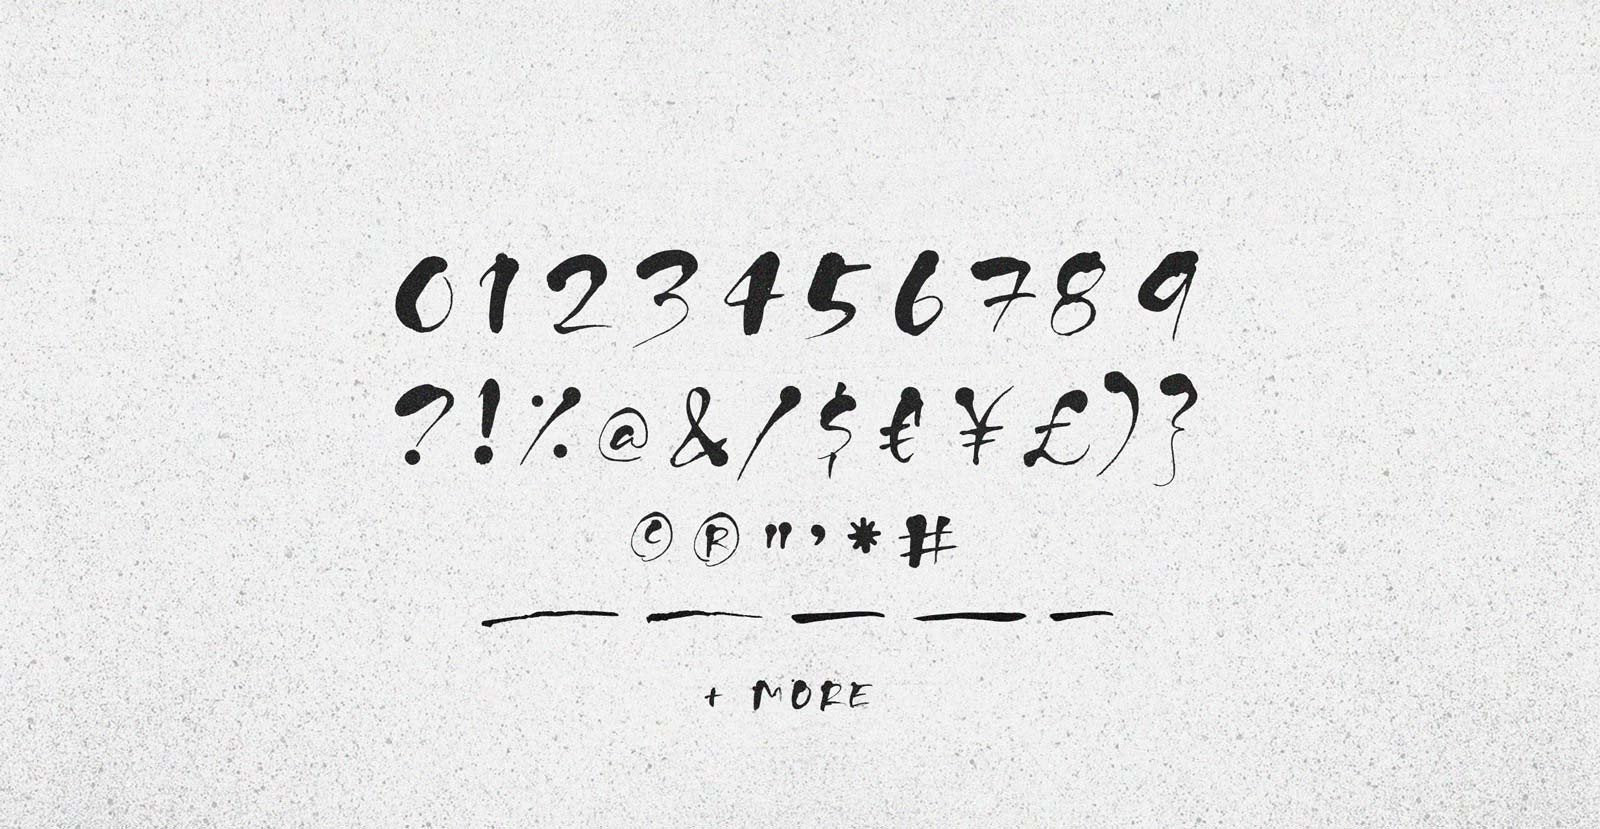 0123456789
?!%@&/$€¥£)}
©®"’*#
— — — — —
+ MORE